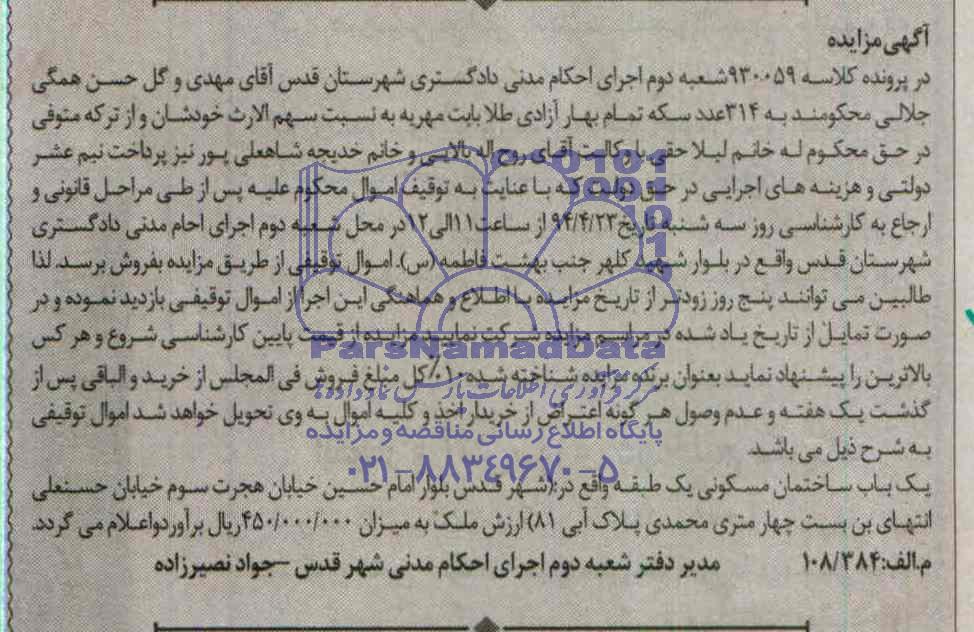 آگهی مزایده
در پرونده کلاسه ۹۳۰۰۵۹شعبه دوم اجرای احکام مدنی دادگستری شهرستان قدس آقای مهدی و گل حسن همگی
جلالی محکومند به ۳۱۴عدد سکه تمام بهار آزادی طلا بابت مهریه به نسبت سهم الارث خودشان و از ترکه متوفی
در حق محکوم له خانم لیلا حقی با وکالت آقای روح اله بالایی و خانم خدیجه شاهعلی پور نیز پرداخت نیم عشر
دولتی و هزینه های اجرایی در حق دولت که با عنایت به توقیف اموال محکوم علیه پس از طی مراحل قانونی و
ارجاع به کارشناسی روز سه شنبه تاریخ ۹۴/۴/۲۳ از ساعت ۱۱الی ۱۲در محل شعبه دوم اجرای احام مدنی دادگستری
شهرستان قدس واقع در بلوار شهید کلهر جنب بهشت فاطمه (س). اموال توقیفی از طریق مزایده بفروش برسد. لذا
طالبین می توانند پنج روز زودتر از تاریخ مزایده با اطلاع و هماهنگی این اجرا از اموال توقیفی بازدید نموده و در
صورت تمایل از تاریخ یاد شده در مراسم مزایده شرکت نمایید مزایده از قیمت پایین کارشناسی شروع و هر کس
بالاترین را پیشنهاد نماید بعنوان برنده مزایده شناخته شده ۱۰٪ کل مبلغ فروش فی المجلس از خرید و الباقی پس از
گذشت یک هفته و عدم وصول هر گونه اعتراض از خریدار اخذ و کلیه اموال به وی تحویل خواهد شد اموال توقیفی
به شرح ذیل می باشد.
یک باب ساختمان مسکونی یک طبقه واقع در:(شهر قدس بلوار امام حسین خیابان هجرت سوم خیابان حسنعلی
انتهای بن بست چهار متری محمدی پلاک آبی ۸۱) ارزش ملک به میزان ۴۵۰/۰۰۰/۰۰۰ریال برآوردواعلام می گردد.
م.الف:۱۰۸/۳۸۴ مدیر دفتر شعبه دوم اجرای احکام مدنی شهر قدس –جواد نصیرزاده
ParsNamadData
مرکز فرآوری اطلاعات پارس نماد داده ها
پایگاه اطلاع رسانی مناقصه و مزایده
۰۲۱-۸۸۳۴۹۶۷۰-۵